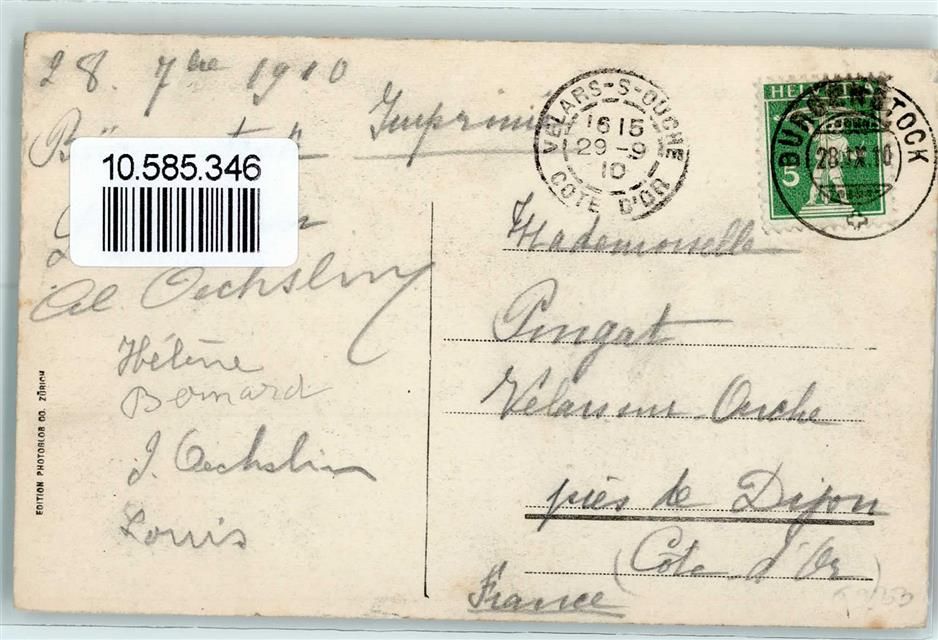 28 7bre 1910
Imprimé
10.585.346
Al. Oechslin
Hélène
Bernard
J. Oechslin
Louis
EDITION PHOTOGLOB CO. ZÜRICH
VELARS-S-OUCHE
16 15
29-9
10
COTE D'OR
HELVETIA
5
BÜRGENSTOCK
28.IX.10
Mademoiselle
Pingat
Velars sur Ouche
près de Dijon
(Côte d'Or)
France